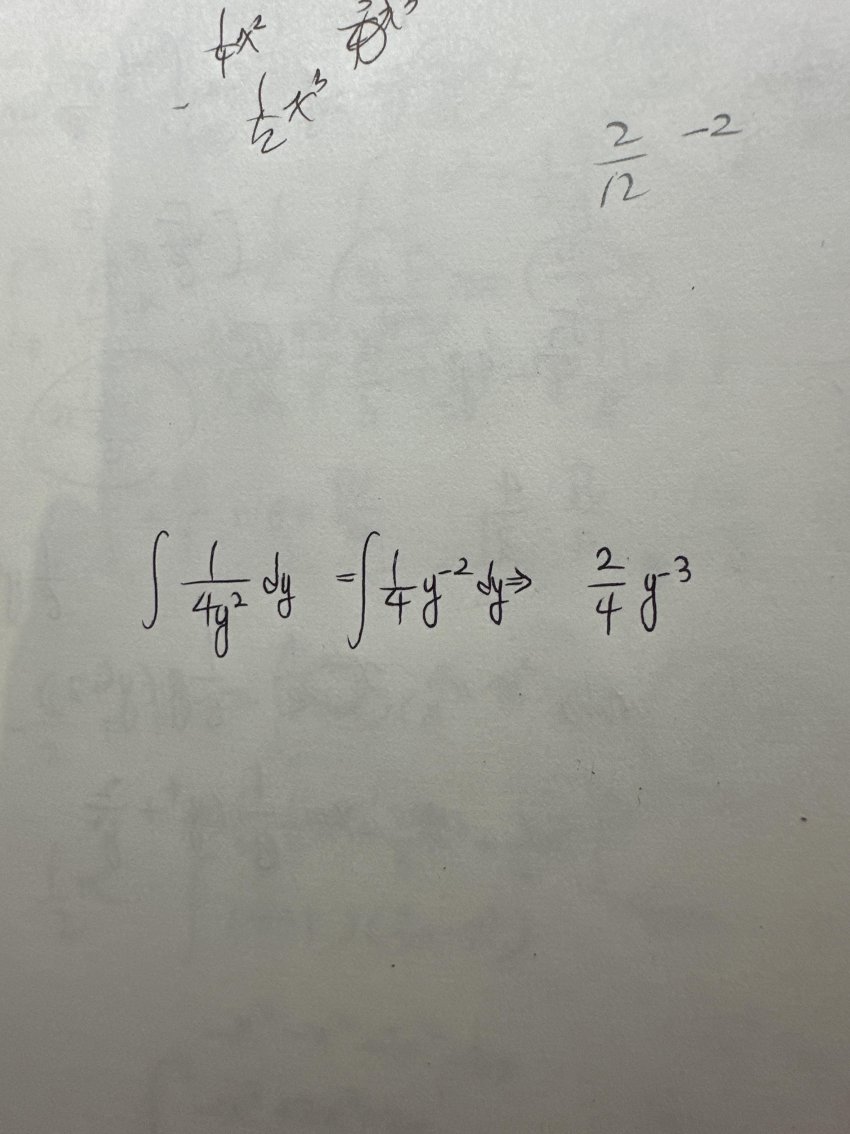 1/4 x²
- 1/2 x³
2/12 -2
∫ 1/4y² dy = ∫ 1/4 y⁻² dy ⇒ 2/4 y⁻³